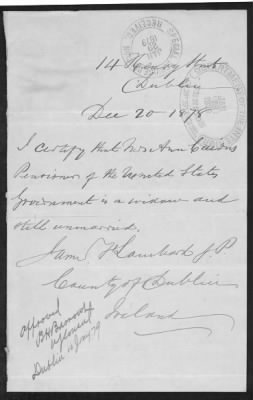 14 Henry Street
Dublin
Dec 20 1878
I certify that Mrs Ann
Pensioner of the United States
Government is a widow and
still unmarried.
Lambard J.P
County of Dublin
Ireland
approved
Dublin Jany 79